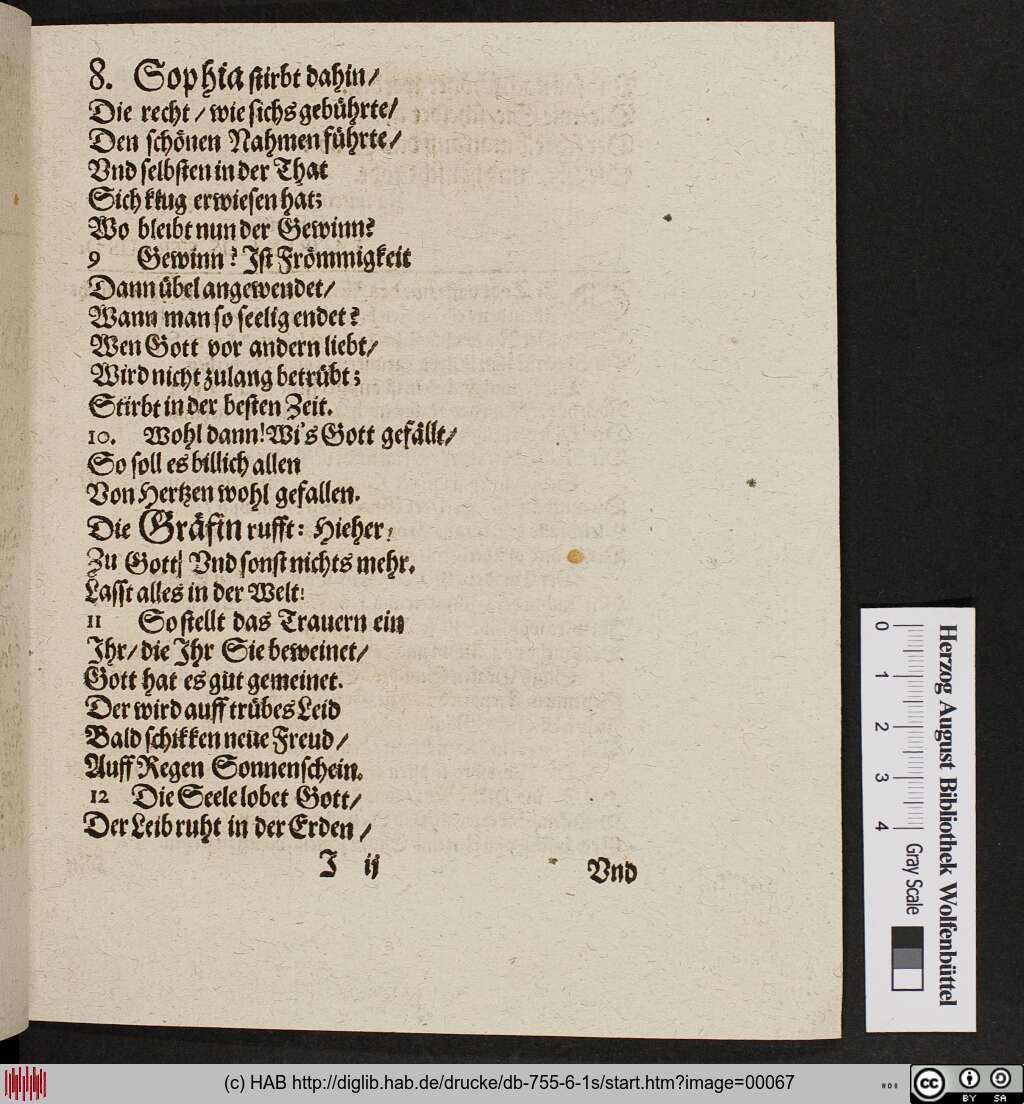 8. Sophia stirbt dahin/
Die recht / wie sichs gebührte/
Den schönen Nahmen führte/
Vnd selbsten in der That
Sich klug erwiesen hat;
Wo bleibt nun der Gewinn?
9 Gewinn? Ist Frömmigkeit
Dann übel angewendet/
Wann man so seelig endet?
Wen Gott vor andern liebt/
Wird nicht zulang betrübt;
Stirbt in der besten Zeit.
10. Wohl dann! Wi's Gott gefällt/
So soll es billich allen
Von Hertzen wohl gefallen.
Die Gräfin rufft: Hieher/
Zu Gott| Vnd sonst nichts mehr.
Lasst alles in der Welt!
11 So stellt das Trauern ein
Ihr/ die Ihr Sie beweinet/
Gott hat es gut gemeinet.
Der wird auff trübes Leid
Bald schikken neue Freud/
Auff Regen Sonnenschein.
12 Die Seele lobet Gott/
Der Leib ruht in der Erden /
I ij Vnd
Herzog August Bibliothek Wolfenbüttel
0 1 2 3 4 Gray Scale
(c) HAB http://diglib.hab.de/drucke/db-755-6-1s/start.htm?image=00067
cc BY SA